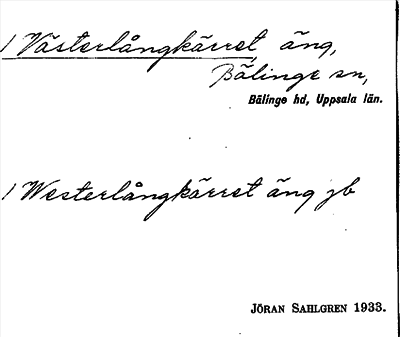 / Västerlångkärret, äng,
Bälinge sn,
Bälinge hd, Uppsala län.
/ Westerlångkärret äng jb
JÖRAN SAHLGREN 1933.